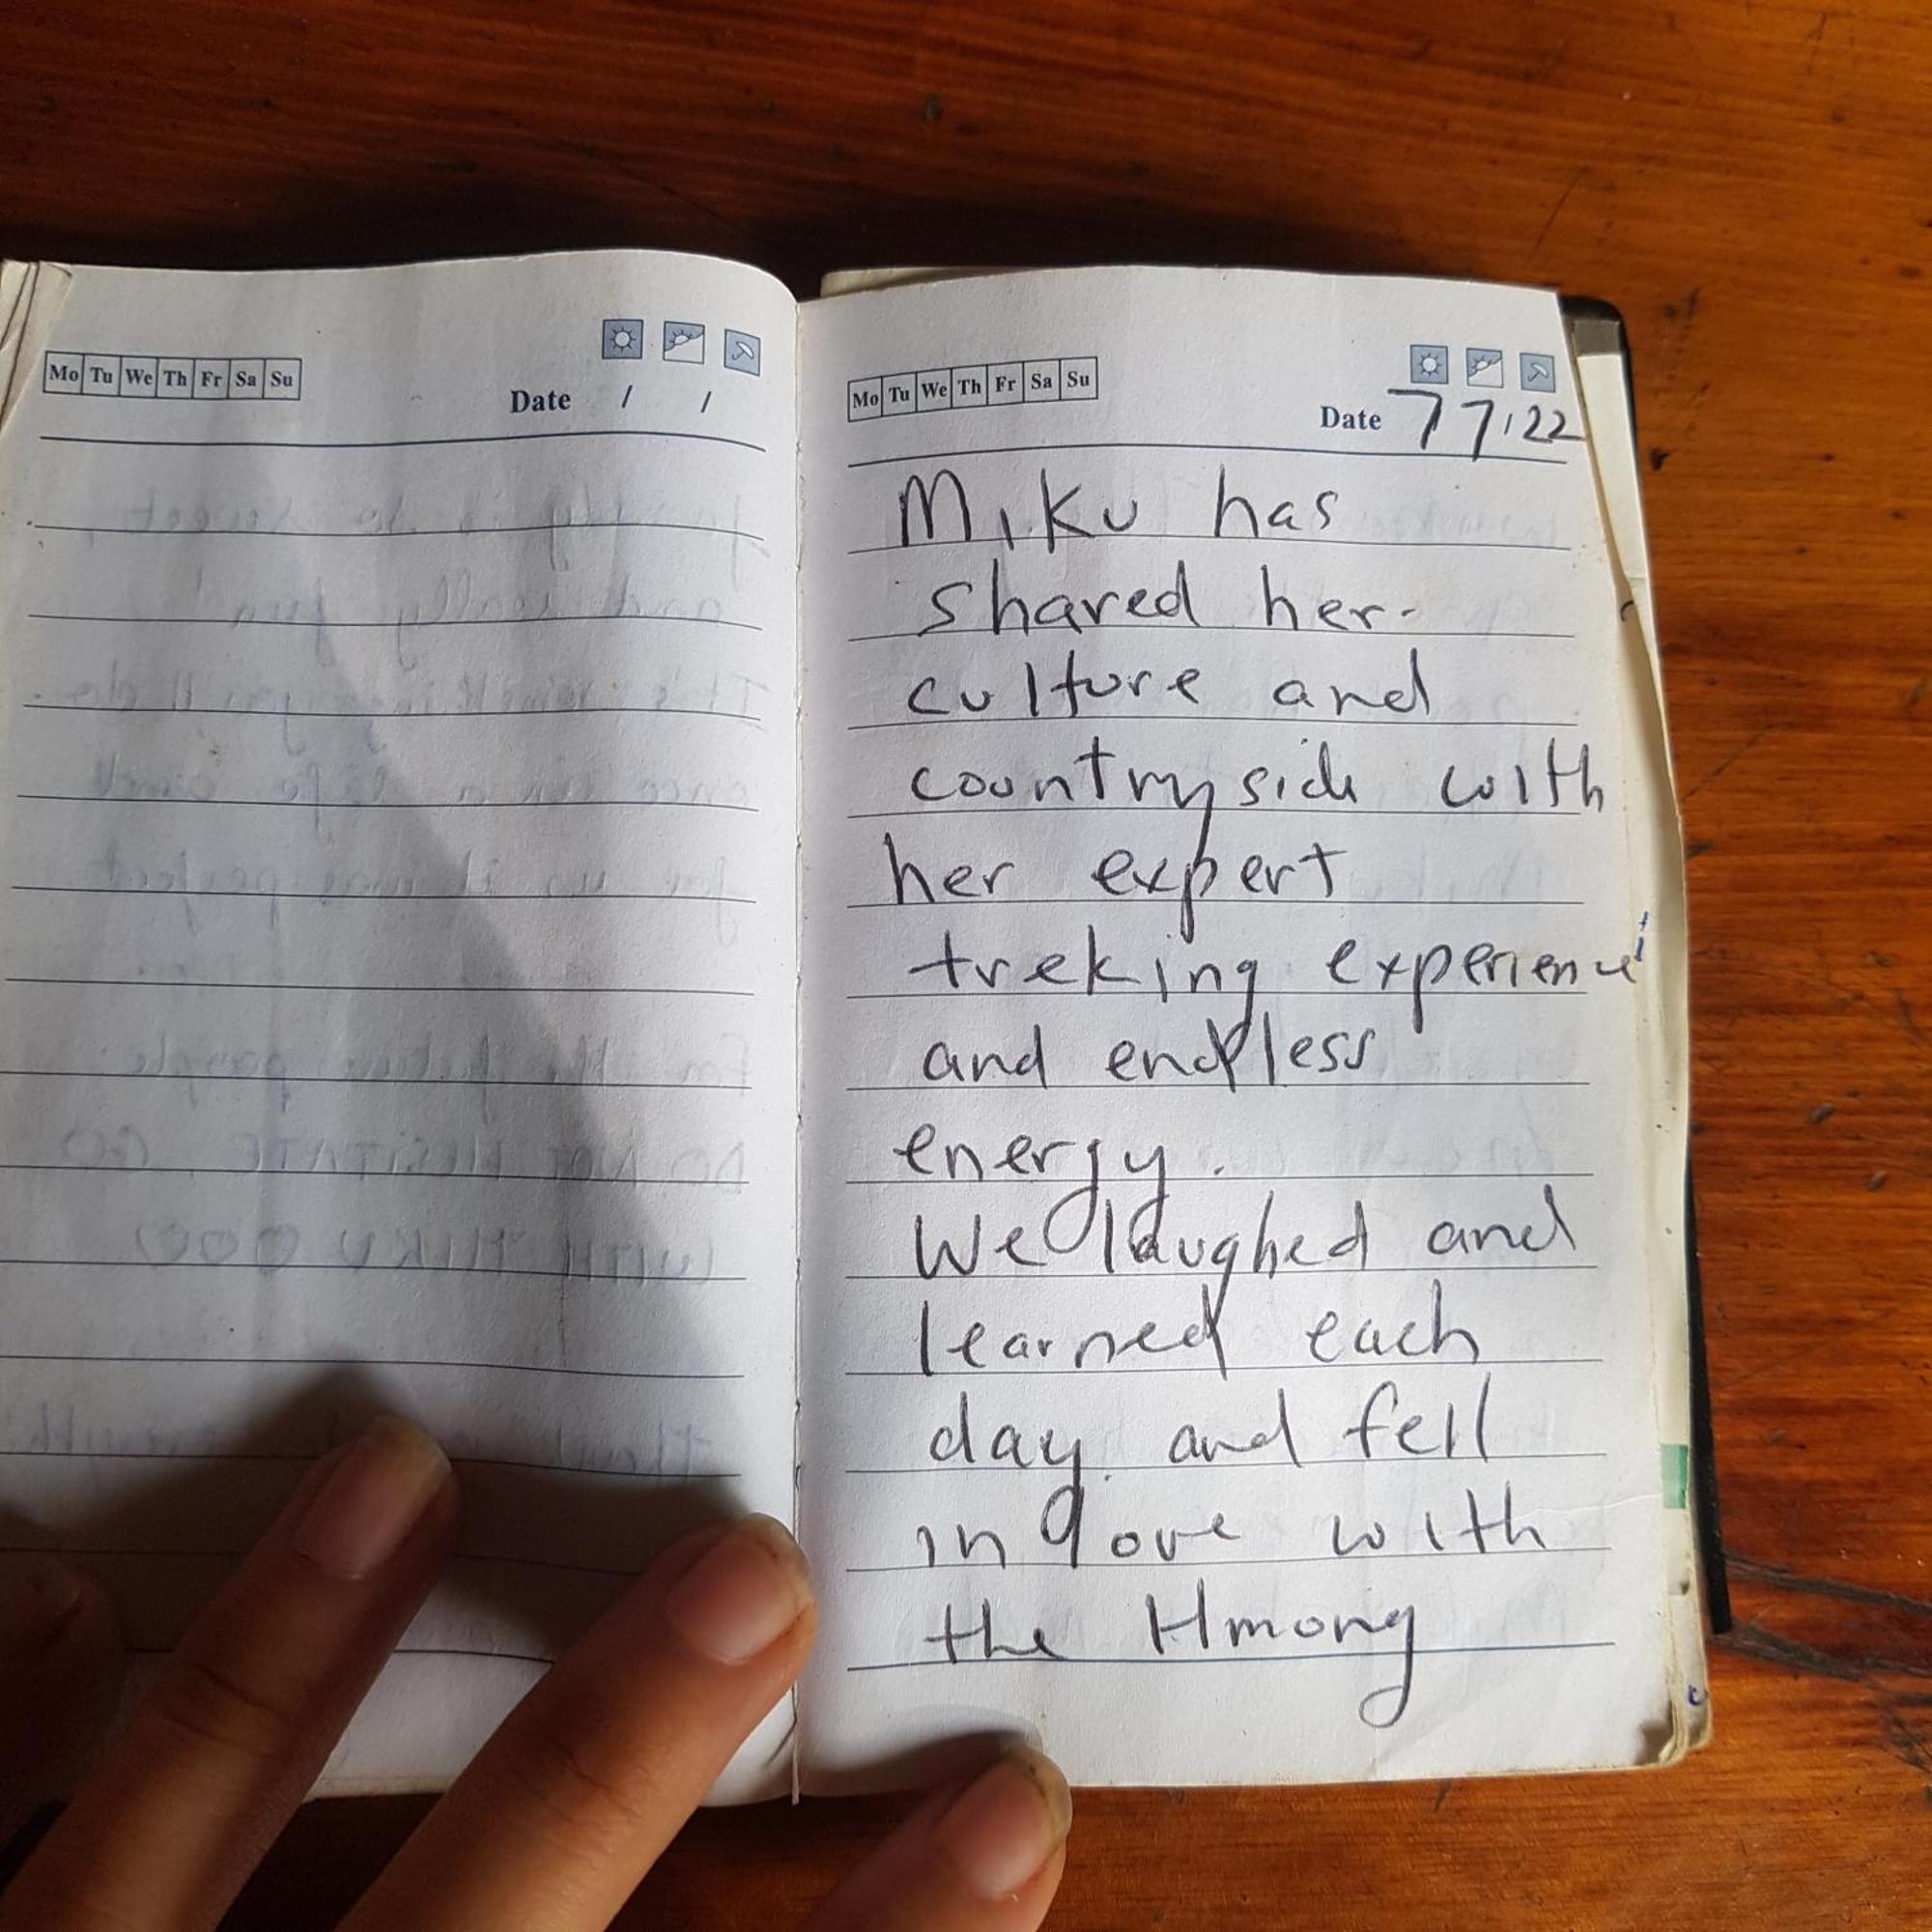 Mo Tu We Th Fr Sa Su
Date / /
Mo Tu We Th Fr Sa Su
Date 7 7/22
Miku has
shared her
culture and
countryside with
her expert
treking experience
and endless
energy.
We laughed and
learned each
day and fell
in love with
the Hmong